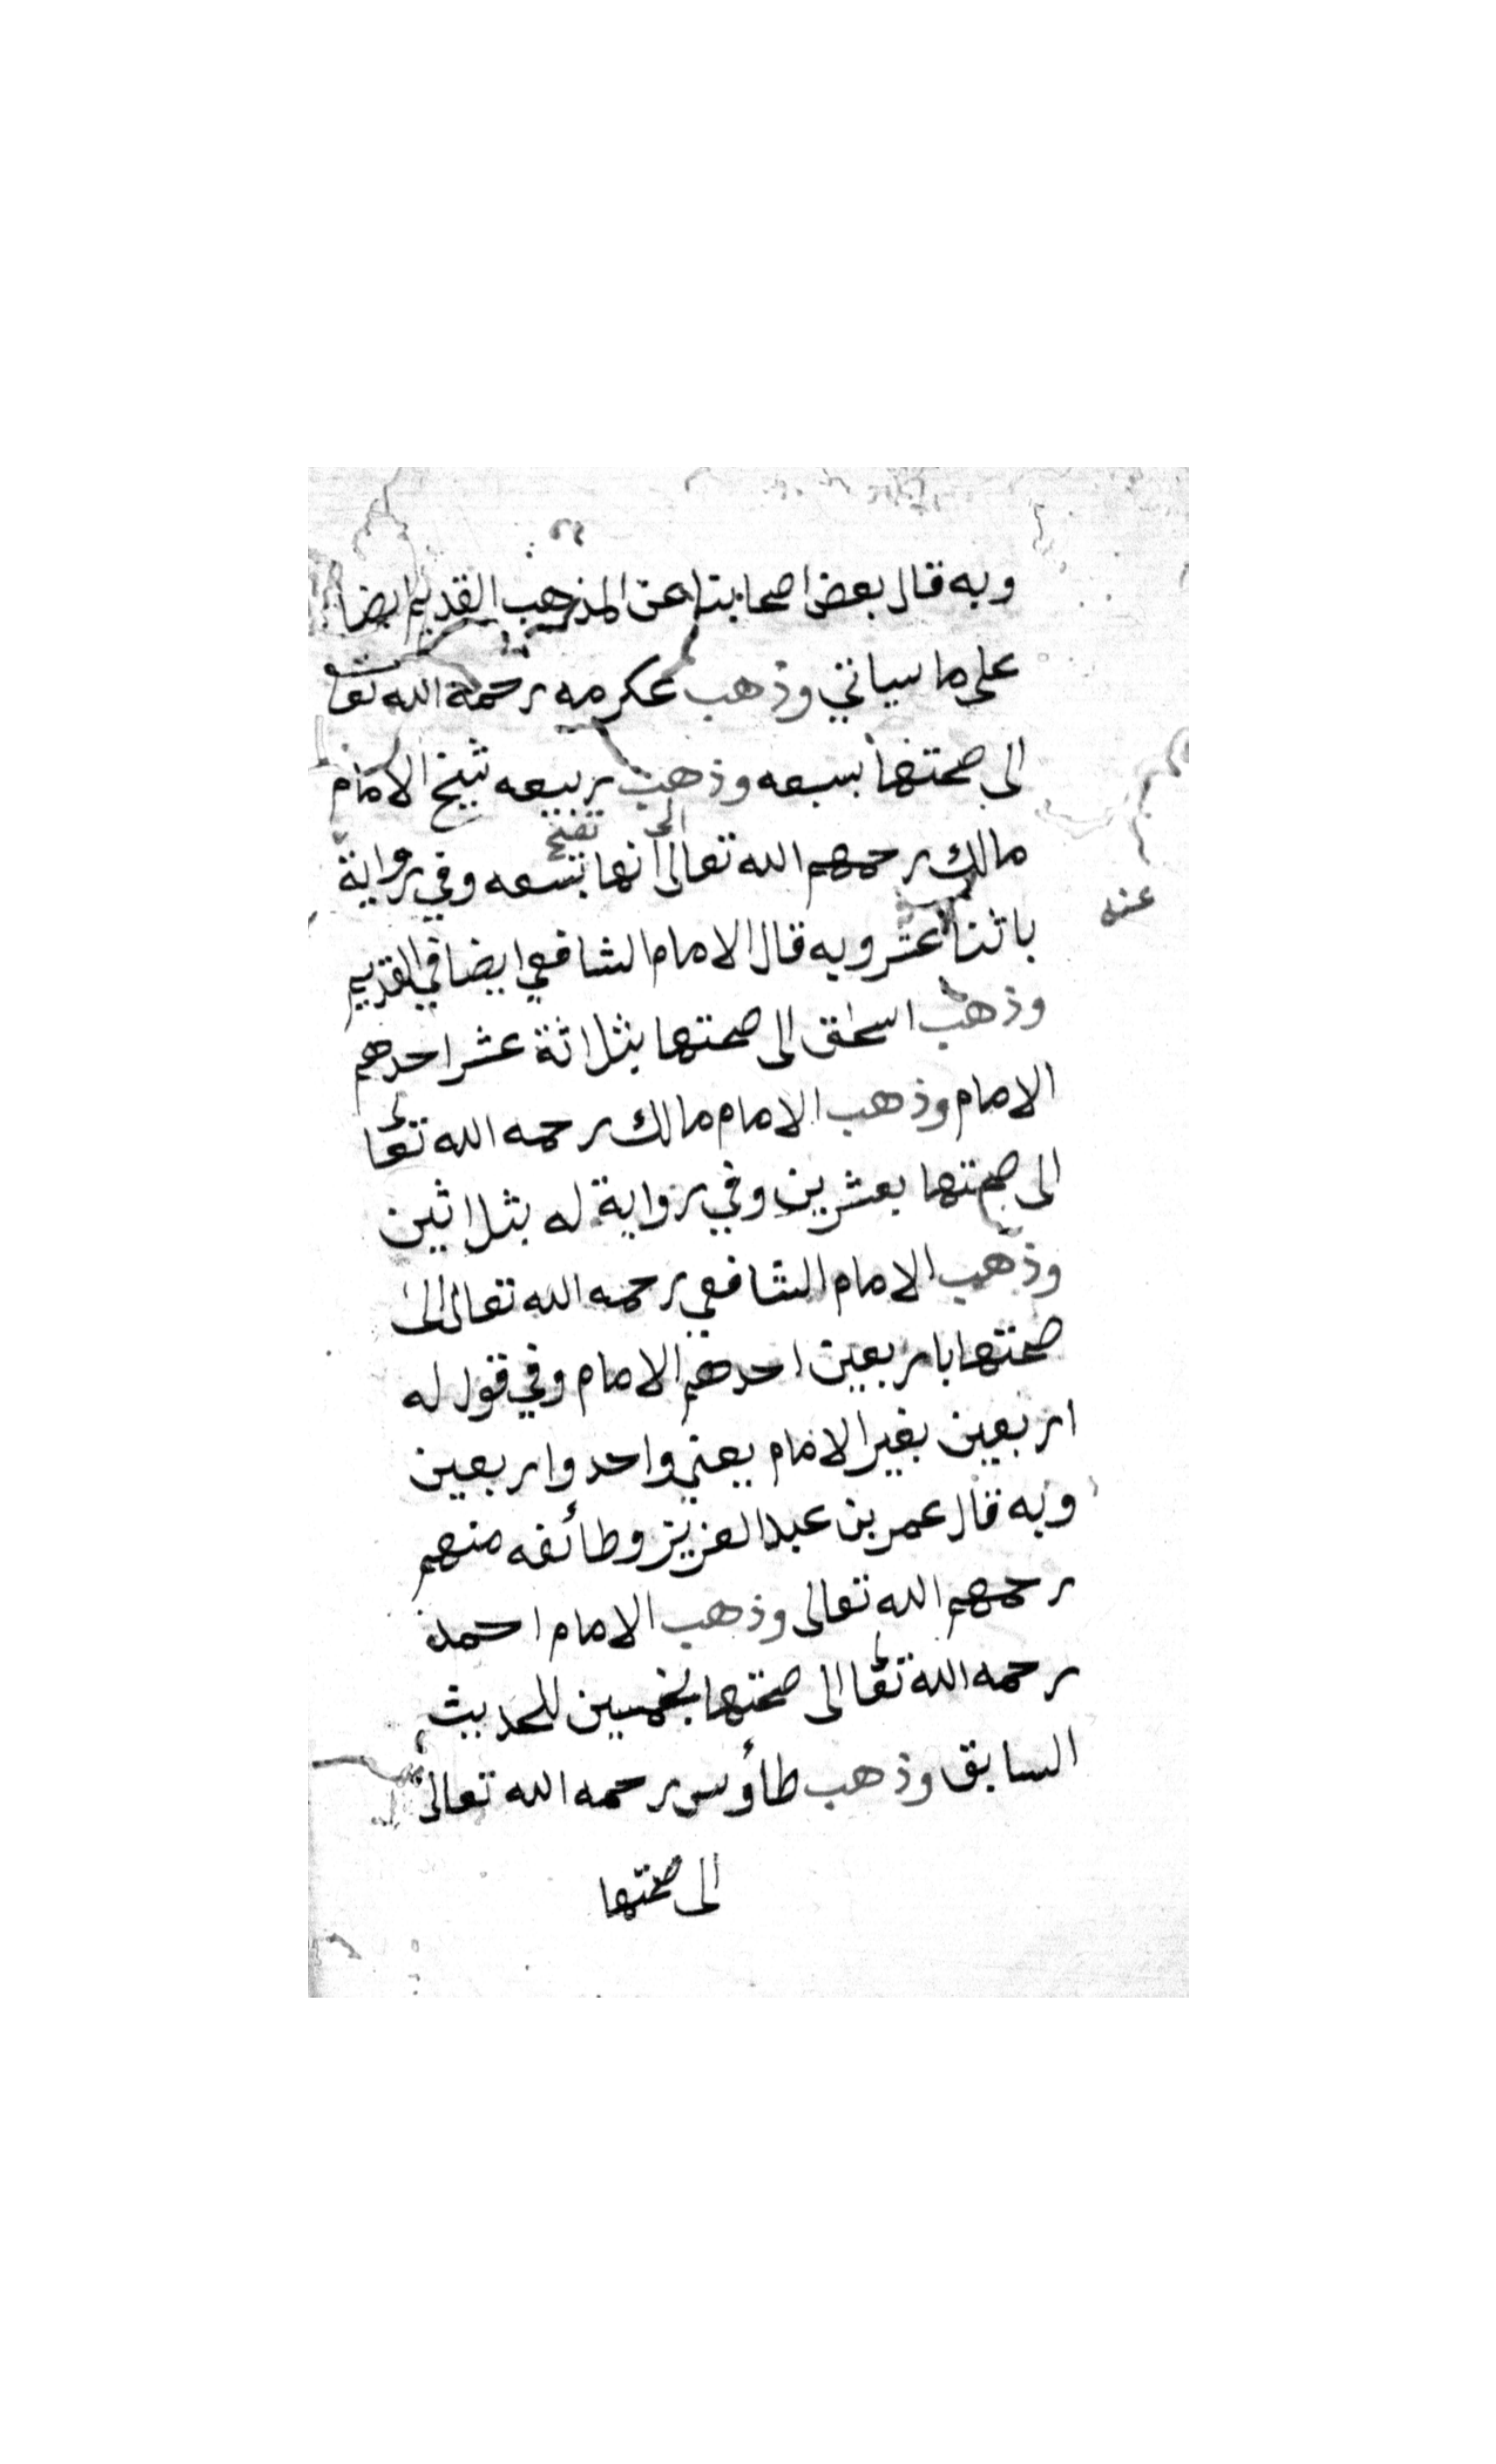 وبه قال بعض اصحابنا عن المذهب القديم ايضا
على ما سياتي وذهب عكرمه رحمة الله تعا
الى صحتها بسبعه وذهب ربيعه شيخ الامام
مالك رحمهم الله تعالى الى انها تصح بتسعه وفي رواية
عنه
باثنا عشر وبه قال الامام الشافعي ايضا في القديم
وذهب اسحق الى صحتها بثلاثة عشر احدهم
الامام وذهب الامام مالك رحمه الله تعالى
الى صحتها بعشرين وفي رواية له بثلاثين
وذهب الامام الشافعي رحمه الله تعالى الى
صحتها باربعين احدهم الامام وفي قول له
اربعين بغير الامام يعني واحد واربعين
وبه قال عمر بن عبد العزيز وطائفه منهم
رحمهم الله تعالى وذهب الامام احمد
رحمه الله تعالى الى صحتها بخمسين للحديث
السابق وذهب طاؤس رحمه الله تعالى
الى صحتها